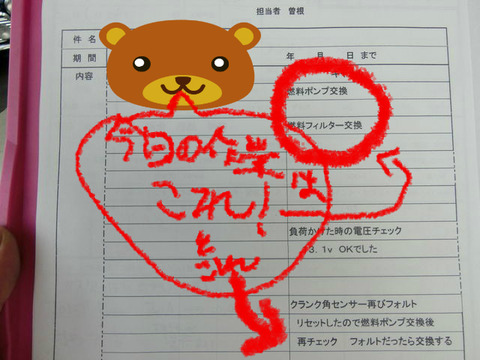 担当者 曽根
件名
期間
年 月 日 まで
内容
燃料ポンプ交換
燃料フィルター交換
今日の作業は
これ!
とこれ
負荷かけた時の電圧チェック
3.1v OKでした
クランク角センサー再びフォルト
リセットしたので燃料ポンプ交換後
再チェック フォルトだったら交換する